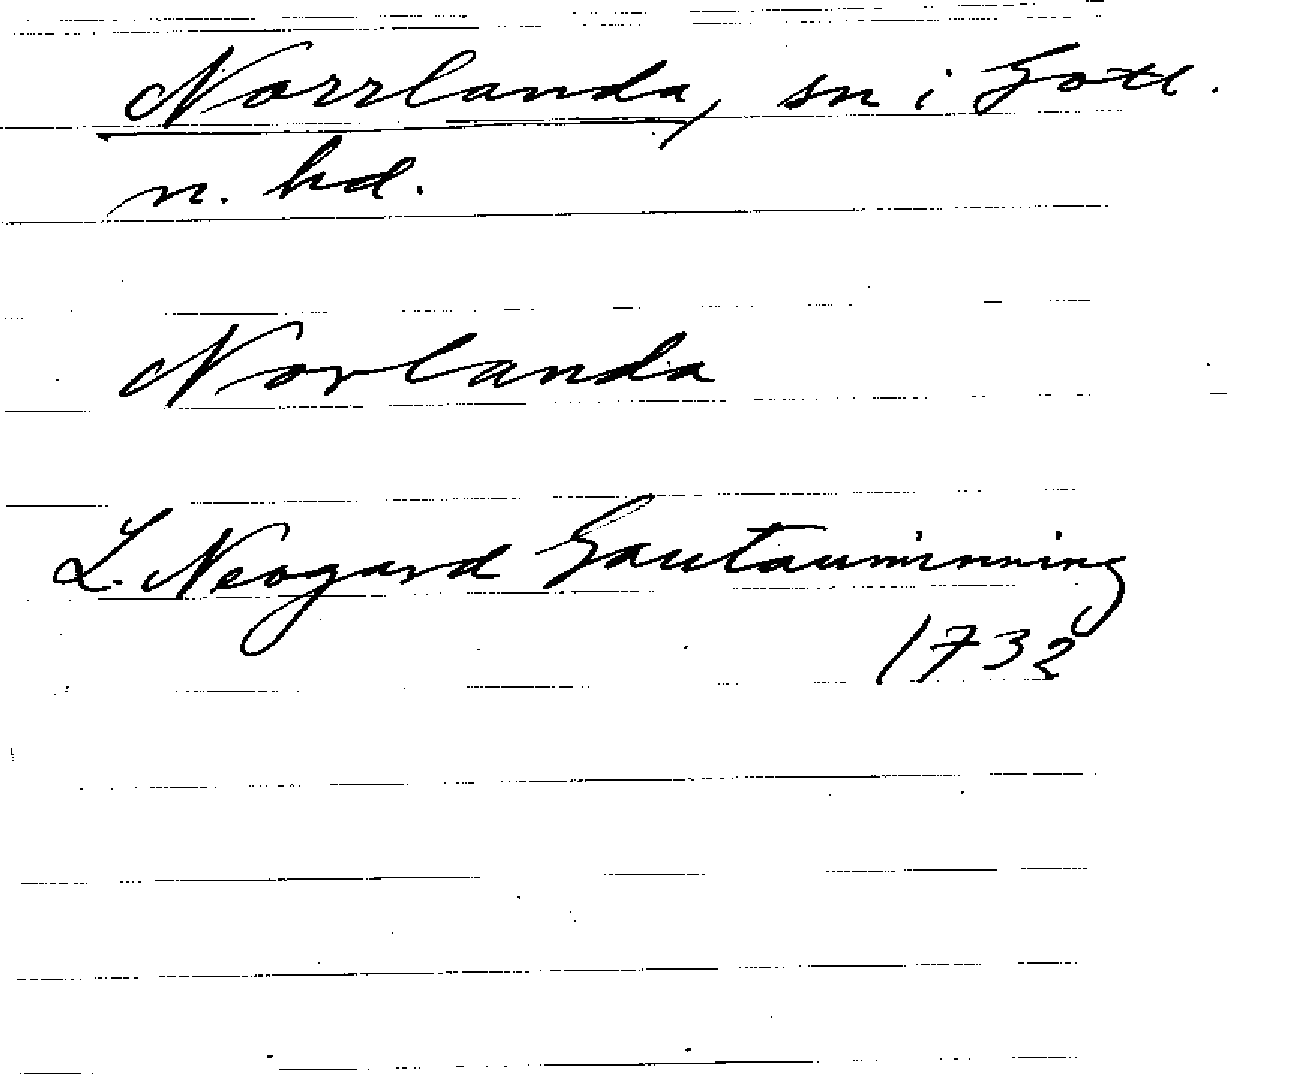 Norrlanda, sn i Gotl.
n. hd.
Norlanda
L. Neogard Gautauminning
1732